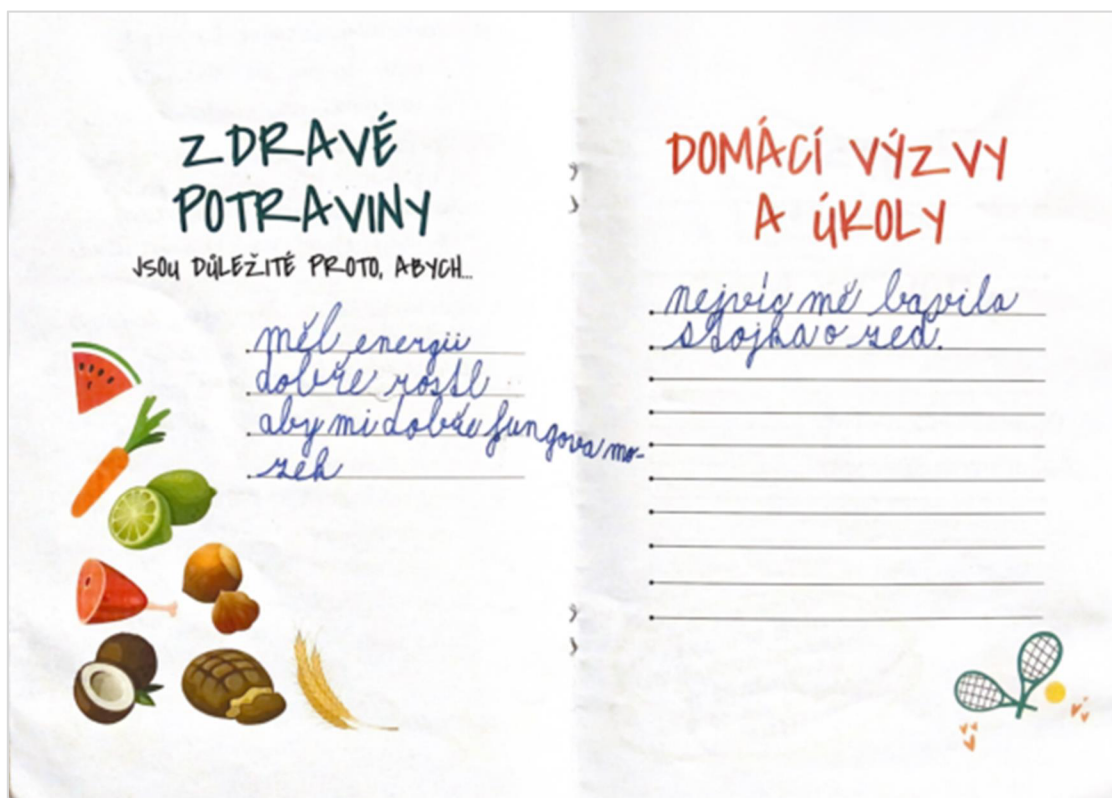 ZDRAVÉ
POTRAVINY
JSOU DŮLEŽITÉ PROTO, ABYCH...
měl energii
dobře rostl
aby mi dobře fungova mo-
zek
DOMÁCÍ VÝZVY
A ÚKOLY
nejvíc mě bavila
stojka o zeď.